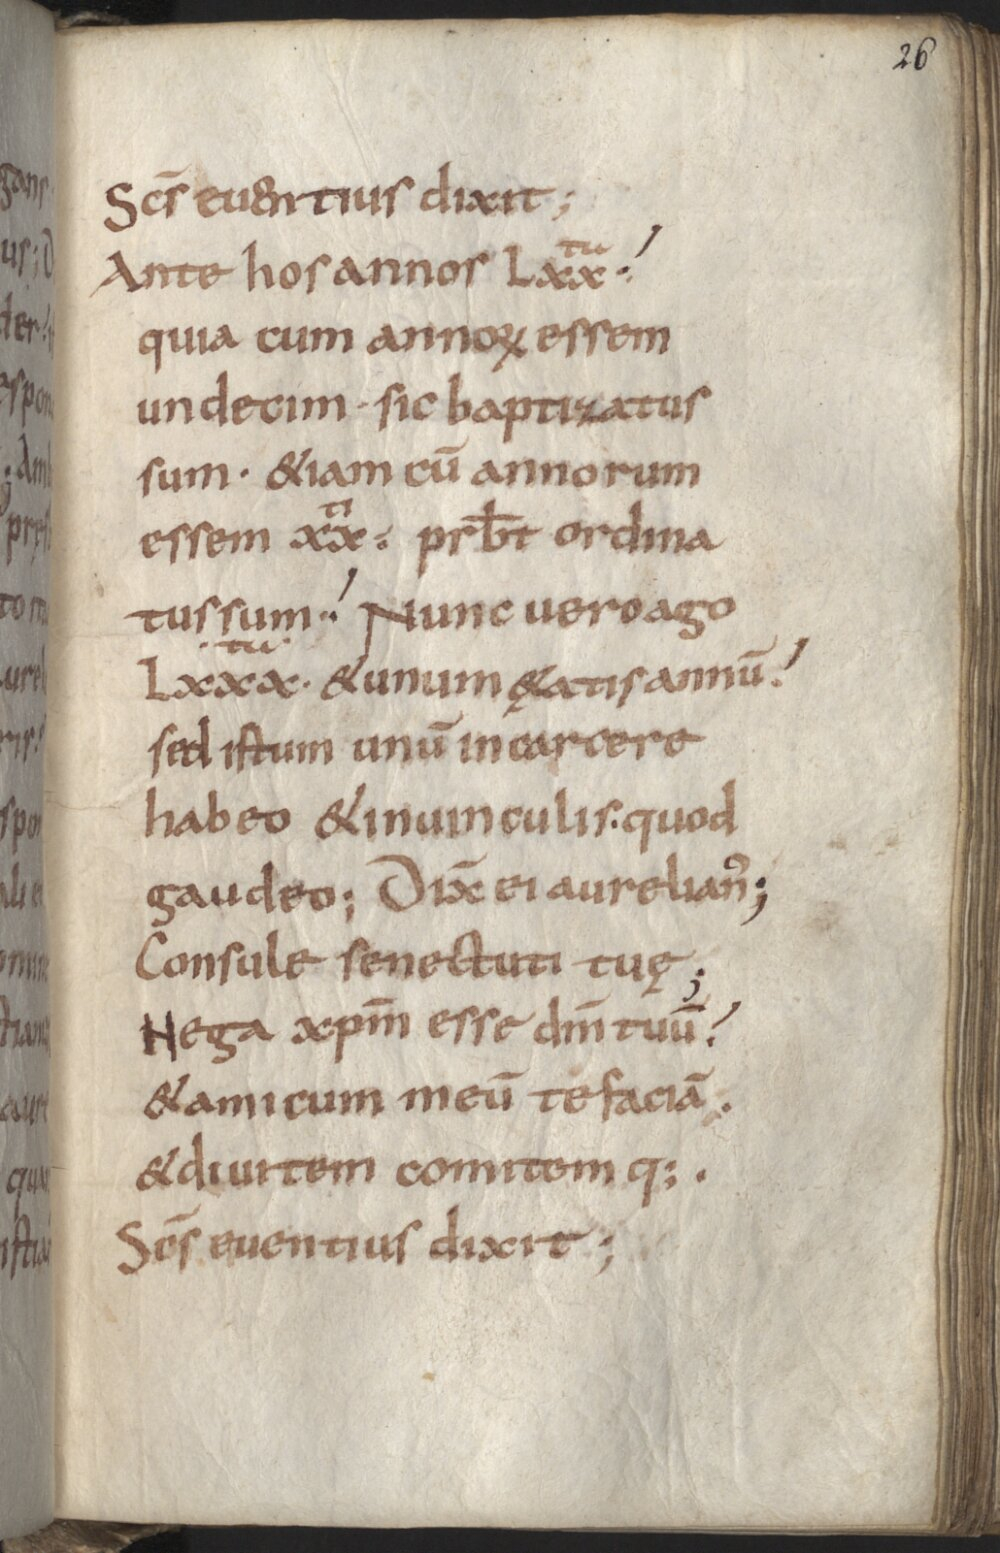 26
Sc̄s euentius dixit;
Ante hos annos Lxx^tu:
quia cum annoꝝ essem
undecim · sic baptizatus
sum · &iam cū annorum
essem xx^ti: prb̄t ordina
tus sum: Nunc uero ago
Lxxx^tu · & unum ę&atis annū:
sed istum unū in carcere
habeo & in uinculis: quod
gaudeo; Dix̄ ei aurelianꝰ;
Consule senectuti tuę;
Nega xp̄m esse dm̄ tuū:
& amicum meū te faciā.
& diuitem comitem q; .
Sc̄s euentius dixit;